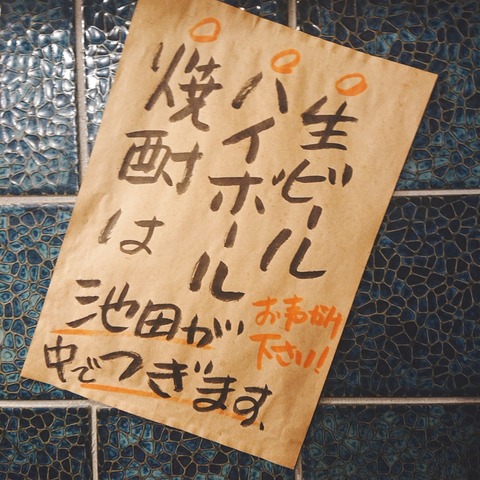 生ビール
ハイボール
焼酎は
池田が
中でつぎます。
お声がけ
下さい!